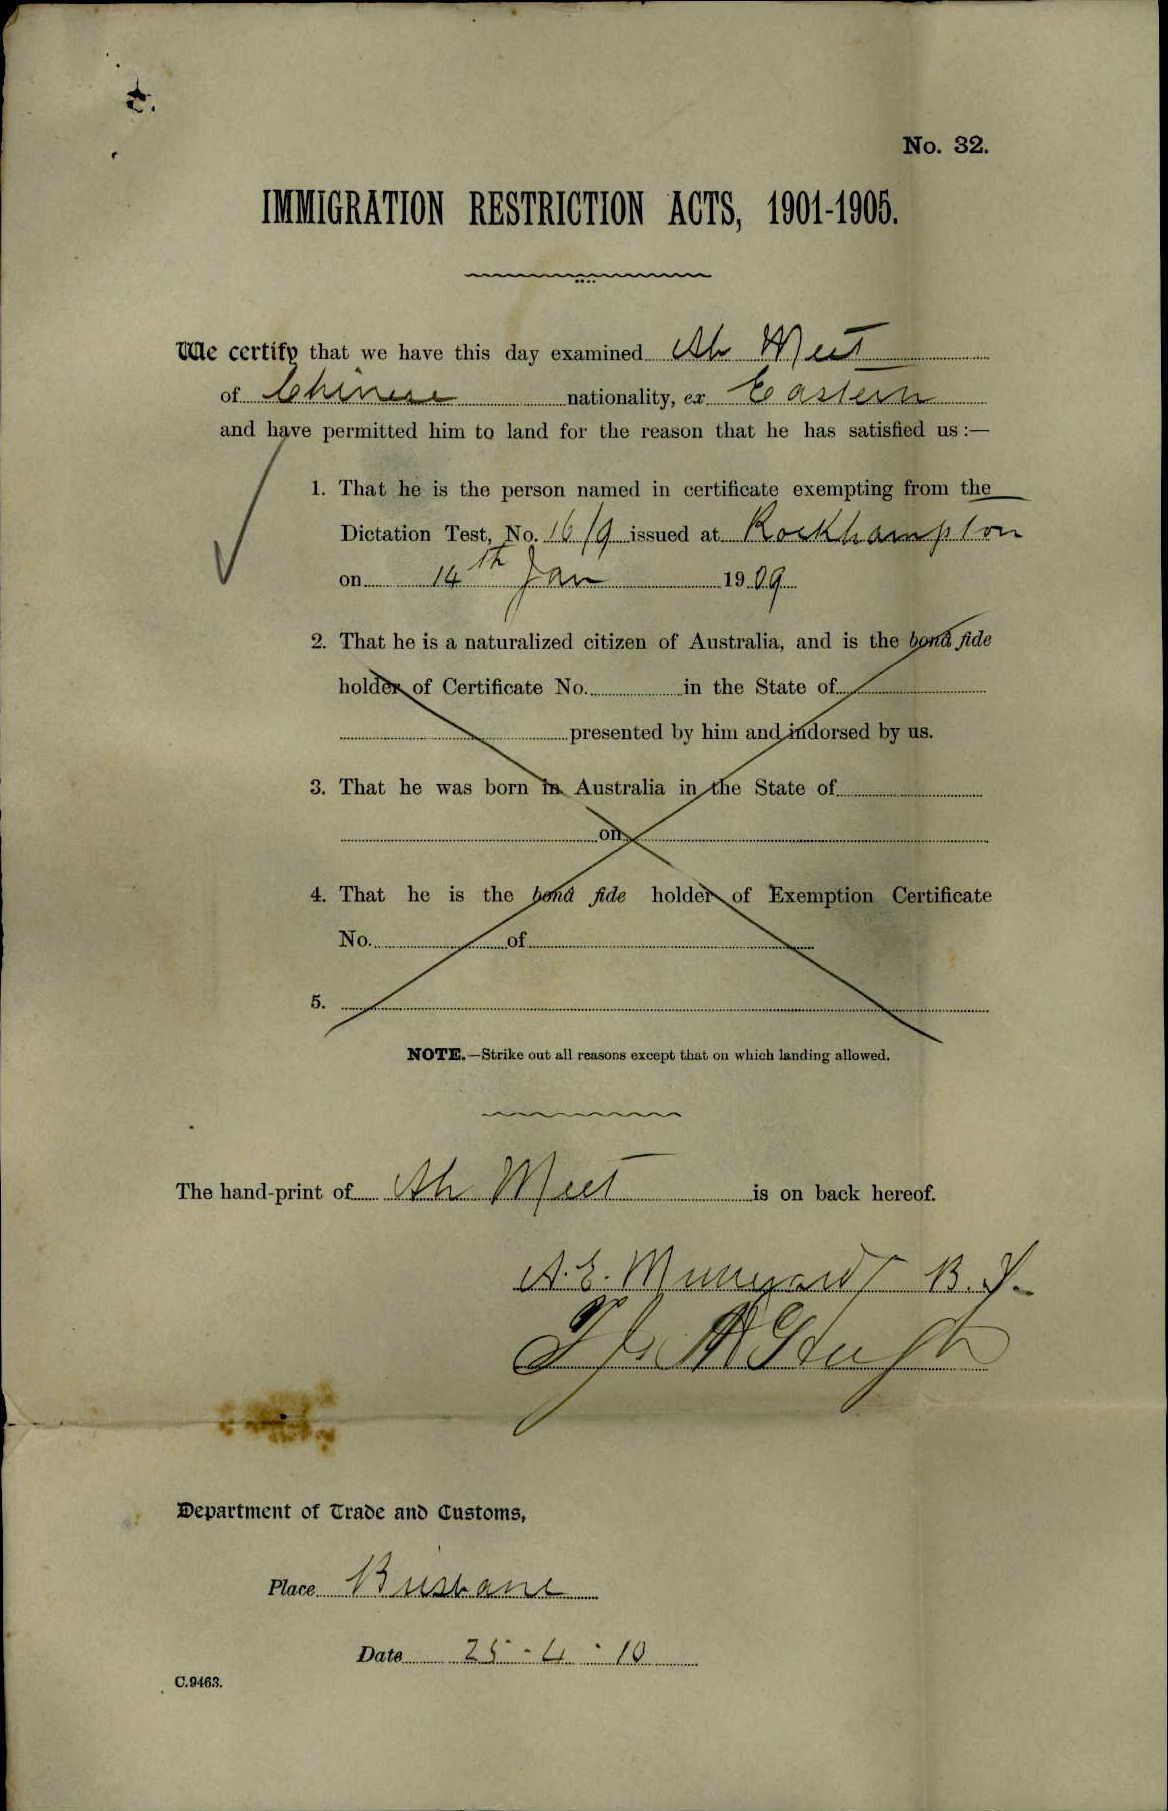 No. 32.
IMMIGRATION RESTRICTION ACTS, 1901-1905.
We certify that we have this day examined Ah Meet
of Chinese nationality, ex Eastern
and have permitted him to land for the reason that he has satisfied us :—
1. That he is the person named in certificate exempting from the
Dictation Test, No. 16/9 issued at Rockhampton
on 14th Jan 1909
2. That he is a naturalized citizen of Australia, and is the bonâ fide
holder of Certificate No. in the State of
presented by him and indorsed by us.
3. That he was born in Australia in the State of
on
4. That he is the bonâ fide holder of Exemption Certificate
No. of
5.
NOTE.—Strike out all reasons except that on which landing allowed.
The hand-print of Ah Meet is on back hereof.
A. E.
Department of Trade and Customs,
Place Brisbane
Date 25-4-10
C.9463.